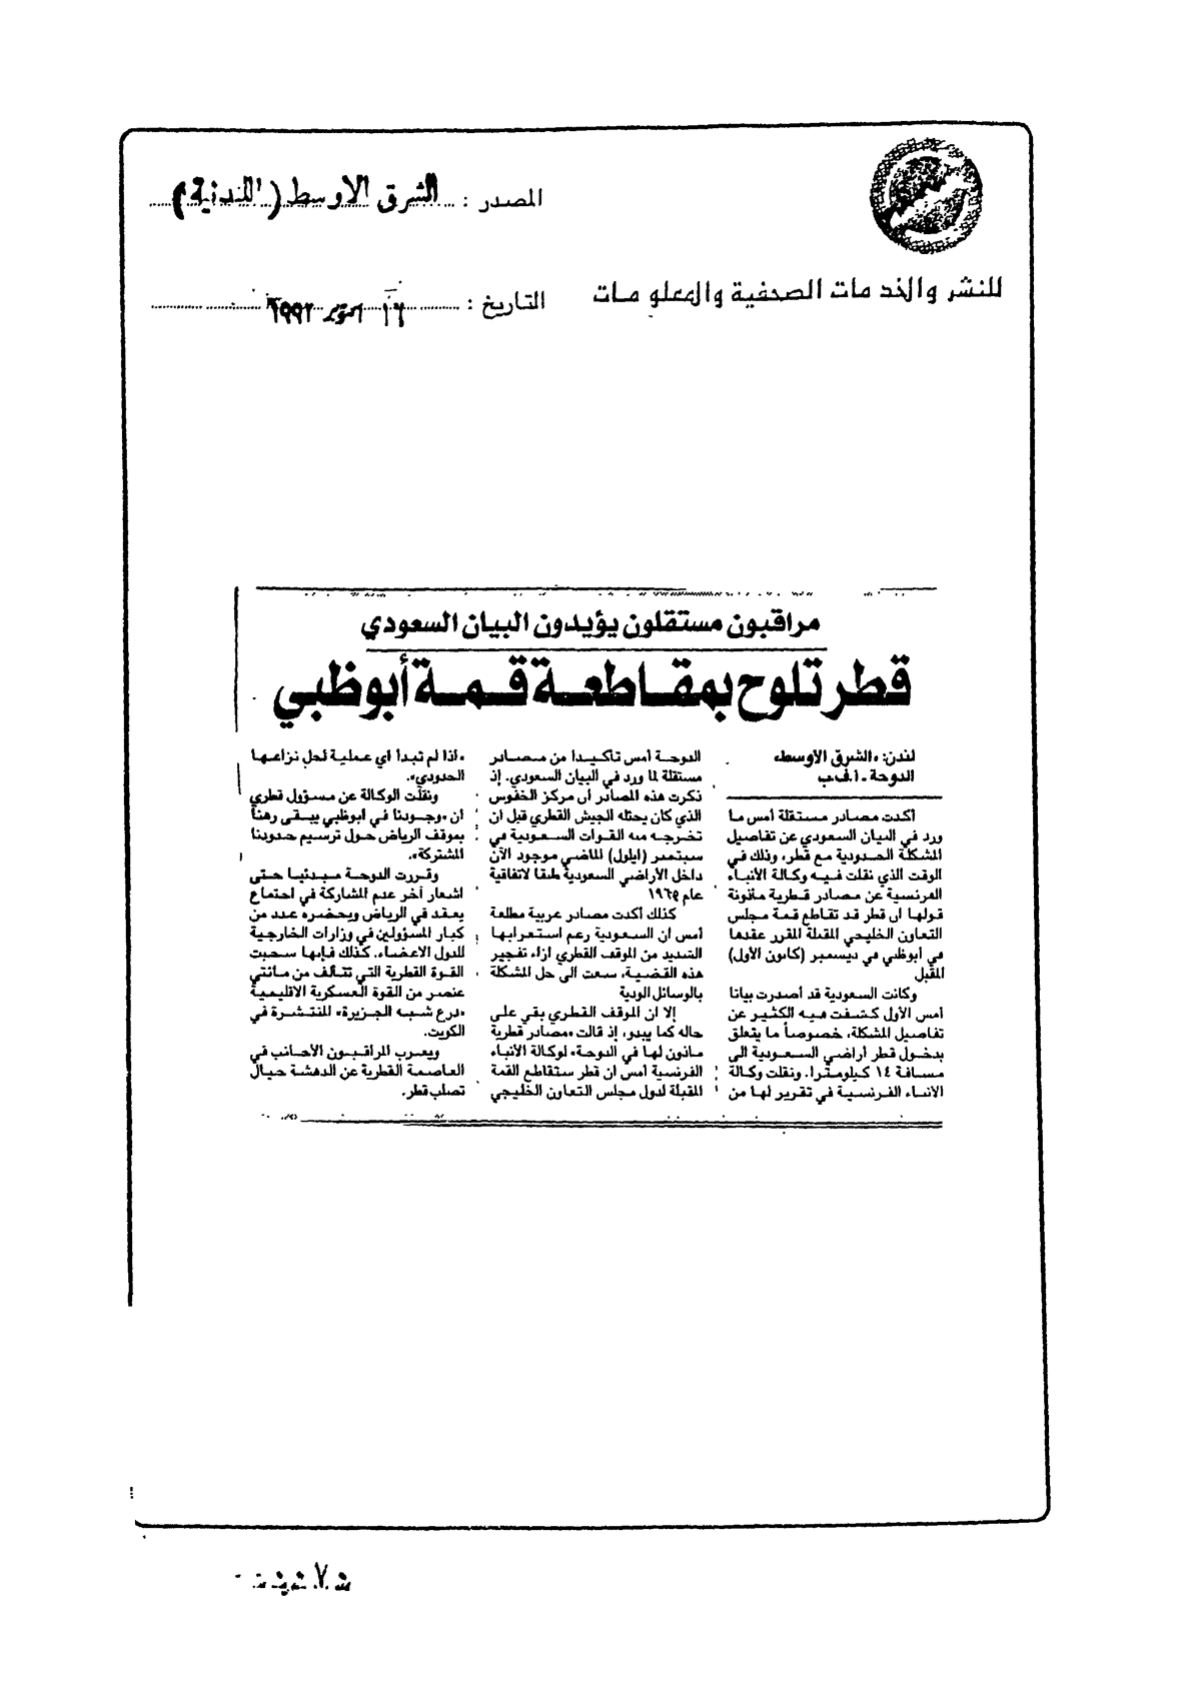 المصدر : الشرق الاوسط (اللندنية)
للنشر والخدمات الصحفية والمعلومات
التاريخ : ١٦ اكتوبر ١٩٩٢
مراقبون مستقلون يؤيدون البيان السعودي
قطر تلوح بمقاطعة قمة أبوظبي
لندن: «الشرق الأوسط»
الدوحة ـ ا.ف.ب
أكدت مصادر مستقلة أمس ما
ورد في البيان السعودي عن تفاصيل
المشكلة الحدودية مع قطر، وذلك في
الوقت الذي نقلت فيه وكالة الأنباء
الفرنسية عن مصادر قطرية مأذونة
قولها ان قطر قد تقاطع قمة مجلس
التعاون الخليجي المقبلة المقرر عقدها
في أبوظبي في ديسمبر (كانون الأول)
المقبل
وكانت السعودية قد أصدرت بيانا
أمس الأول كشفت فيه الكثير عن
تفاصيل المشكلة، خصوصاً ما يتعلق
بدخول قطر أراضي السعودية الى
مسافة ١٤ كيلومترا. ونقلت وكالة
الانباء الفرنسية في تقرير لها من
الدوحة أمس تأكيدا من مصادر
مستقلة لما ورد في البيان السعودي. إذ
ذكرت هذه المصادر أن مركز الخفوس
الذي كان يحتله الجيش القطري قبل ان
تخرجه منه القوات السعودية في
سبتمبر (ايلول) الماضي موجود الآن
داخل الأراضي السعودية طبقا لاتفاقية
عام ١٩٦٥
كذلك أكدت مصادر عربية مطلعة
أمس ان السعودية رغم استغرابها
الشديد من الموقف القطري ازاء تفجير
هذه القضية، سعت الى حل المشكلة
بالوسائل الودية
إلا ان الموقف القطري بقي على
حاله كما يبدو، إذ قالت «مصادر قطرية
مأذون لها في الدوحة» لوكالة الأنباء
الفرنسية أمس ان قطر ستقاطع القمة
المقبلة لدول مجلس التعاون الخليجي
«اذا لم تبدأ اي عملية لحل نزاعها
الحدودي».
ونقلت الوكالة عن مسؤول قطري
ان «وجودنا في ابوظبي يبقى رهناً
بموقف الرياض حول ترسيم حدودنا
المشتركة».
وقررت الدوحة مبدئيا حتى
اشعار آخر عدم المشاركة في اجتماع
يعقد في الرياض ويحضره عدد من
كبار المسؤولين في وزارات الخارجية
للدول الاعضاء. كذلك فإنها سحبت
القوة القطرية التي تتألف من مائتي
عنصر من القوة العسكرية الاقليمية
«درع شبه الجزيرة» المنتشرة في
الكويت.
ويعرب المراقبون الأجانب في
العاصمة القطرية عن الدهشة حيال
تصلب قطر.